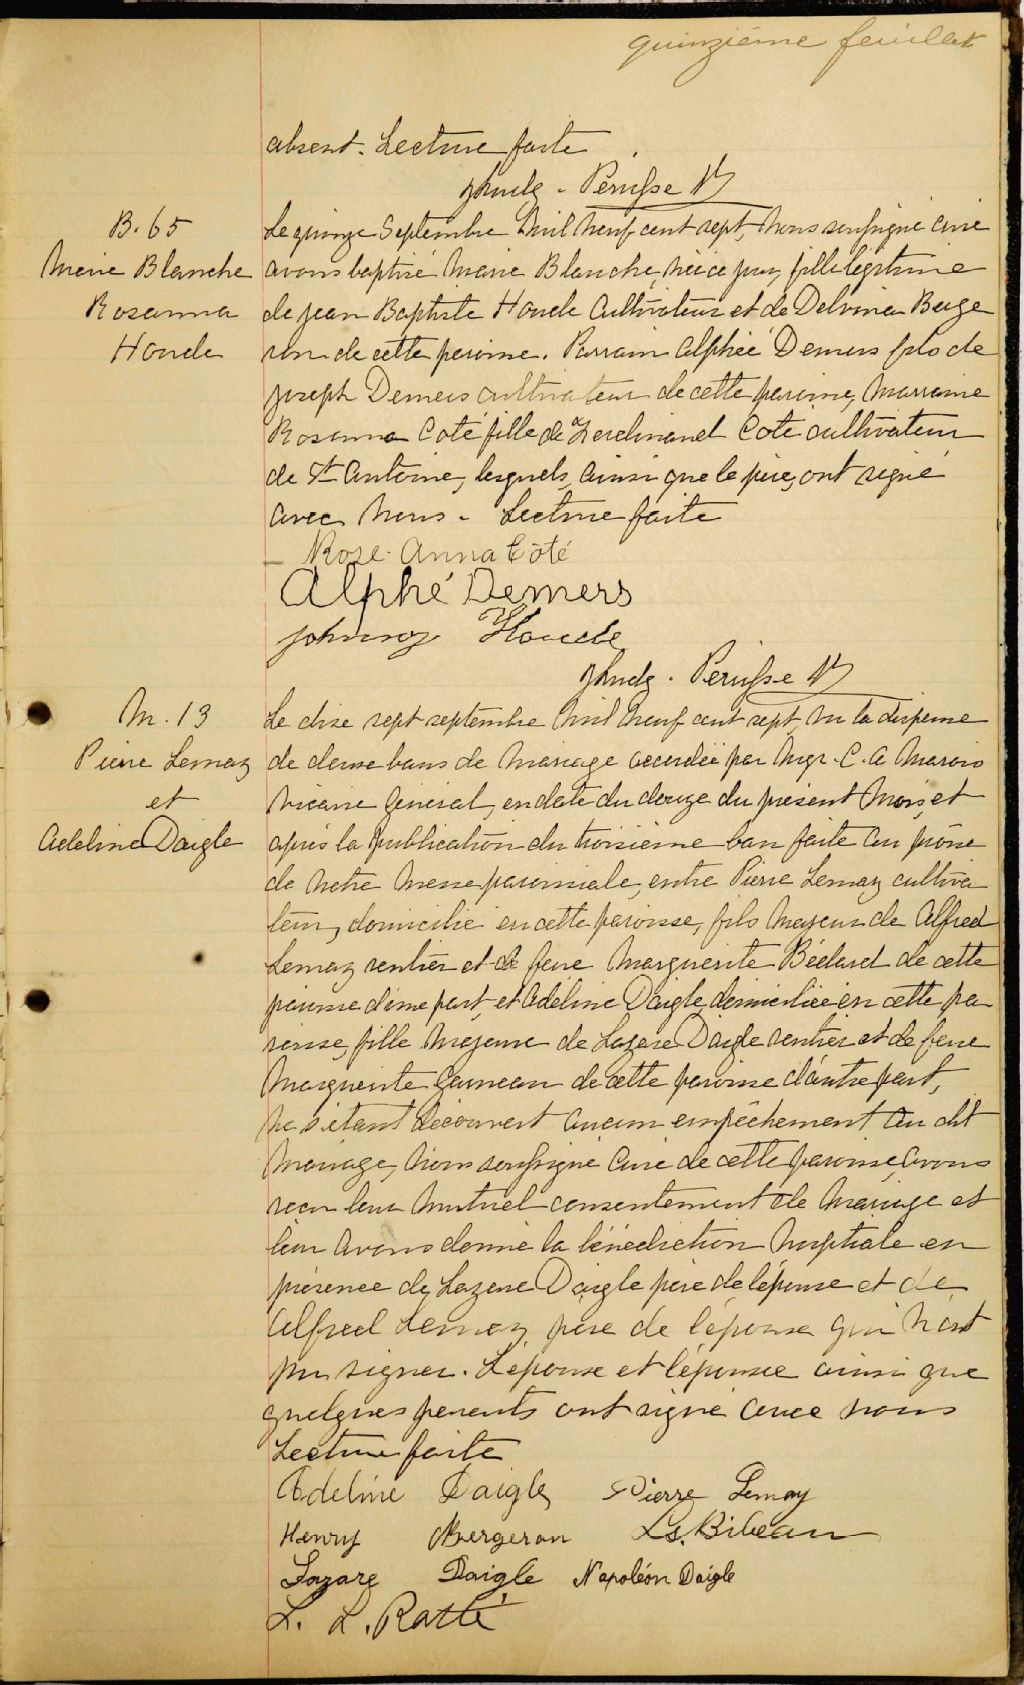 quinzième feuillet
absent. Lecture faite
Pérusse Ptr
B. 65
Marie Blanche
Rosanna
Houde
Le quinze Septembre mil neuf cent sept, nous soussigné curé
avons baptisé Marie Blanche, née ce jour, fille légitime
de Jean Baptiste Houde Cultivateur et de Delvina Berge
ron de cette paroisse. Parrain Alphée Demers fils de
Joseph Demers cultivateur de cette paroisse, Marraine
Rosanna Coté fille de Ferdinand Coté cultivateur
de St Antoine, lesquels, ainsi que le père, ont signé
avec nous - Lecture faite
Rose-Anna Côté
Alphé Demers
Johnny Houde
Pérusse Ptr
M. 13
Pierre Lemay
et
Adeline Daigle
Le dix sept septembre mil neuf cent sept, vu la dispense
de deux bans de mariage accordée par Mgr. C. A Marois
Vicaire Général, en date du douze du présent mois, et
après la publication du troisième ban faite au prône
de notre messe paroissiale, entre Pierre Lemay cultiva
teur, domicilié en cette paroisse, fils majeur de Alfred
Lemay rentier et de feue Marguerite Bédard de cette
paroisse d'une part, et Adeline Daigle, domiciliée en cette pa
roisse, fille majeure de Lazare Daigle rentier et de feue
Marguerite Garneau de cette paroisse d'autre part,
ne s'étant découvert aucun empêchement au dit
mariage, nous soussigné curé de cette paroisse, avons
reçu leur mutuel consentement de mariage et
leur avons donné la bénédiction nuptiale en
présence de Lazare Daigle père de l'épouse et de
Alfred Lemay, père de l'époux qui n'ont
pu signer. L'époux et l'épouse ainsi que
quelques parents ont signé avec nous
Lecture faite
Adeline Daigle Pierre Lemay
Henry Bergeron Ls. Bibeau
Lazare Daigle Napoléon Daigle
L. L. Ratté